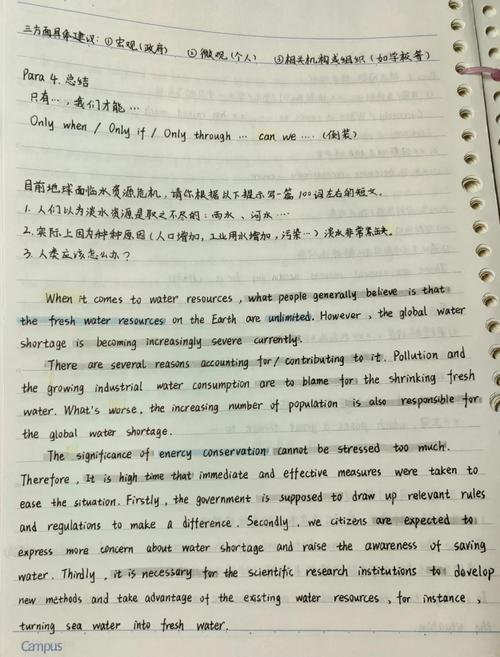 三方面具体建议：①宏观(政府) ②微观(个人) ③相关机构或组织(如学校等)
Para 4. 总结
只有…，我们才能…
Only when / Only if / Only through … can we …. (倒装)
目前地球面临水资源危机，请你根据以下提示写一篇100词左右的短文。
1. 人们以为淡水资源是取之不尽的：雨水、河水….
2. 实际上因为种种原因(人口增加，工业用水增加，污染…)淡水非常紧缺。
3. 人类应该怎么办？
When it comes to water resources, what people generally believe is that
the fresh water resources on the Earth are unlimited. However, the global water
shortage is becoming increasingly severe currently.
There are several reasons accounting for / contributing to it. Pollution and
the growing industrial water consumption are to blame for the shrinking fresh
water. What's worse, the increasing number of population is also responsible for
the global water shortage.
The significance of enercy conservation cannot be stressed too much.
Therefore, It is high time that immediate and effective measures were taken to
ease the situation. Firstly, the government is supposed to draw up relevant rules
and regulations to make a difference. Secondly, we citizens are expected to
express more concern about water shortage and raise the awareness of saving
water. Thirdly, it is necessary for the scientific research institutions to develop
new methods and take advantage of the existing water resources, for instance,
turning sea water into fresh water.
Campus